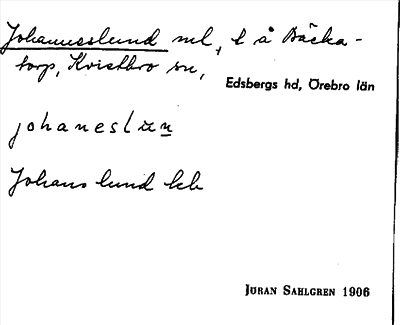 Johannesslund ml, t å Bäcka-
torp, Kvistbro sn,
Edsbergs hd, Örebro län
johaneslun
Johanslund kb
JÖRAN SAHLGREN 1906